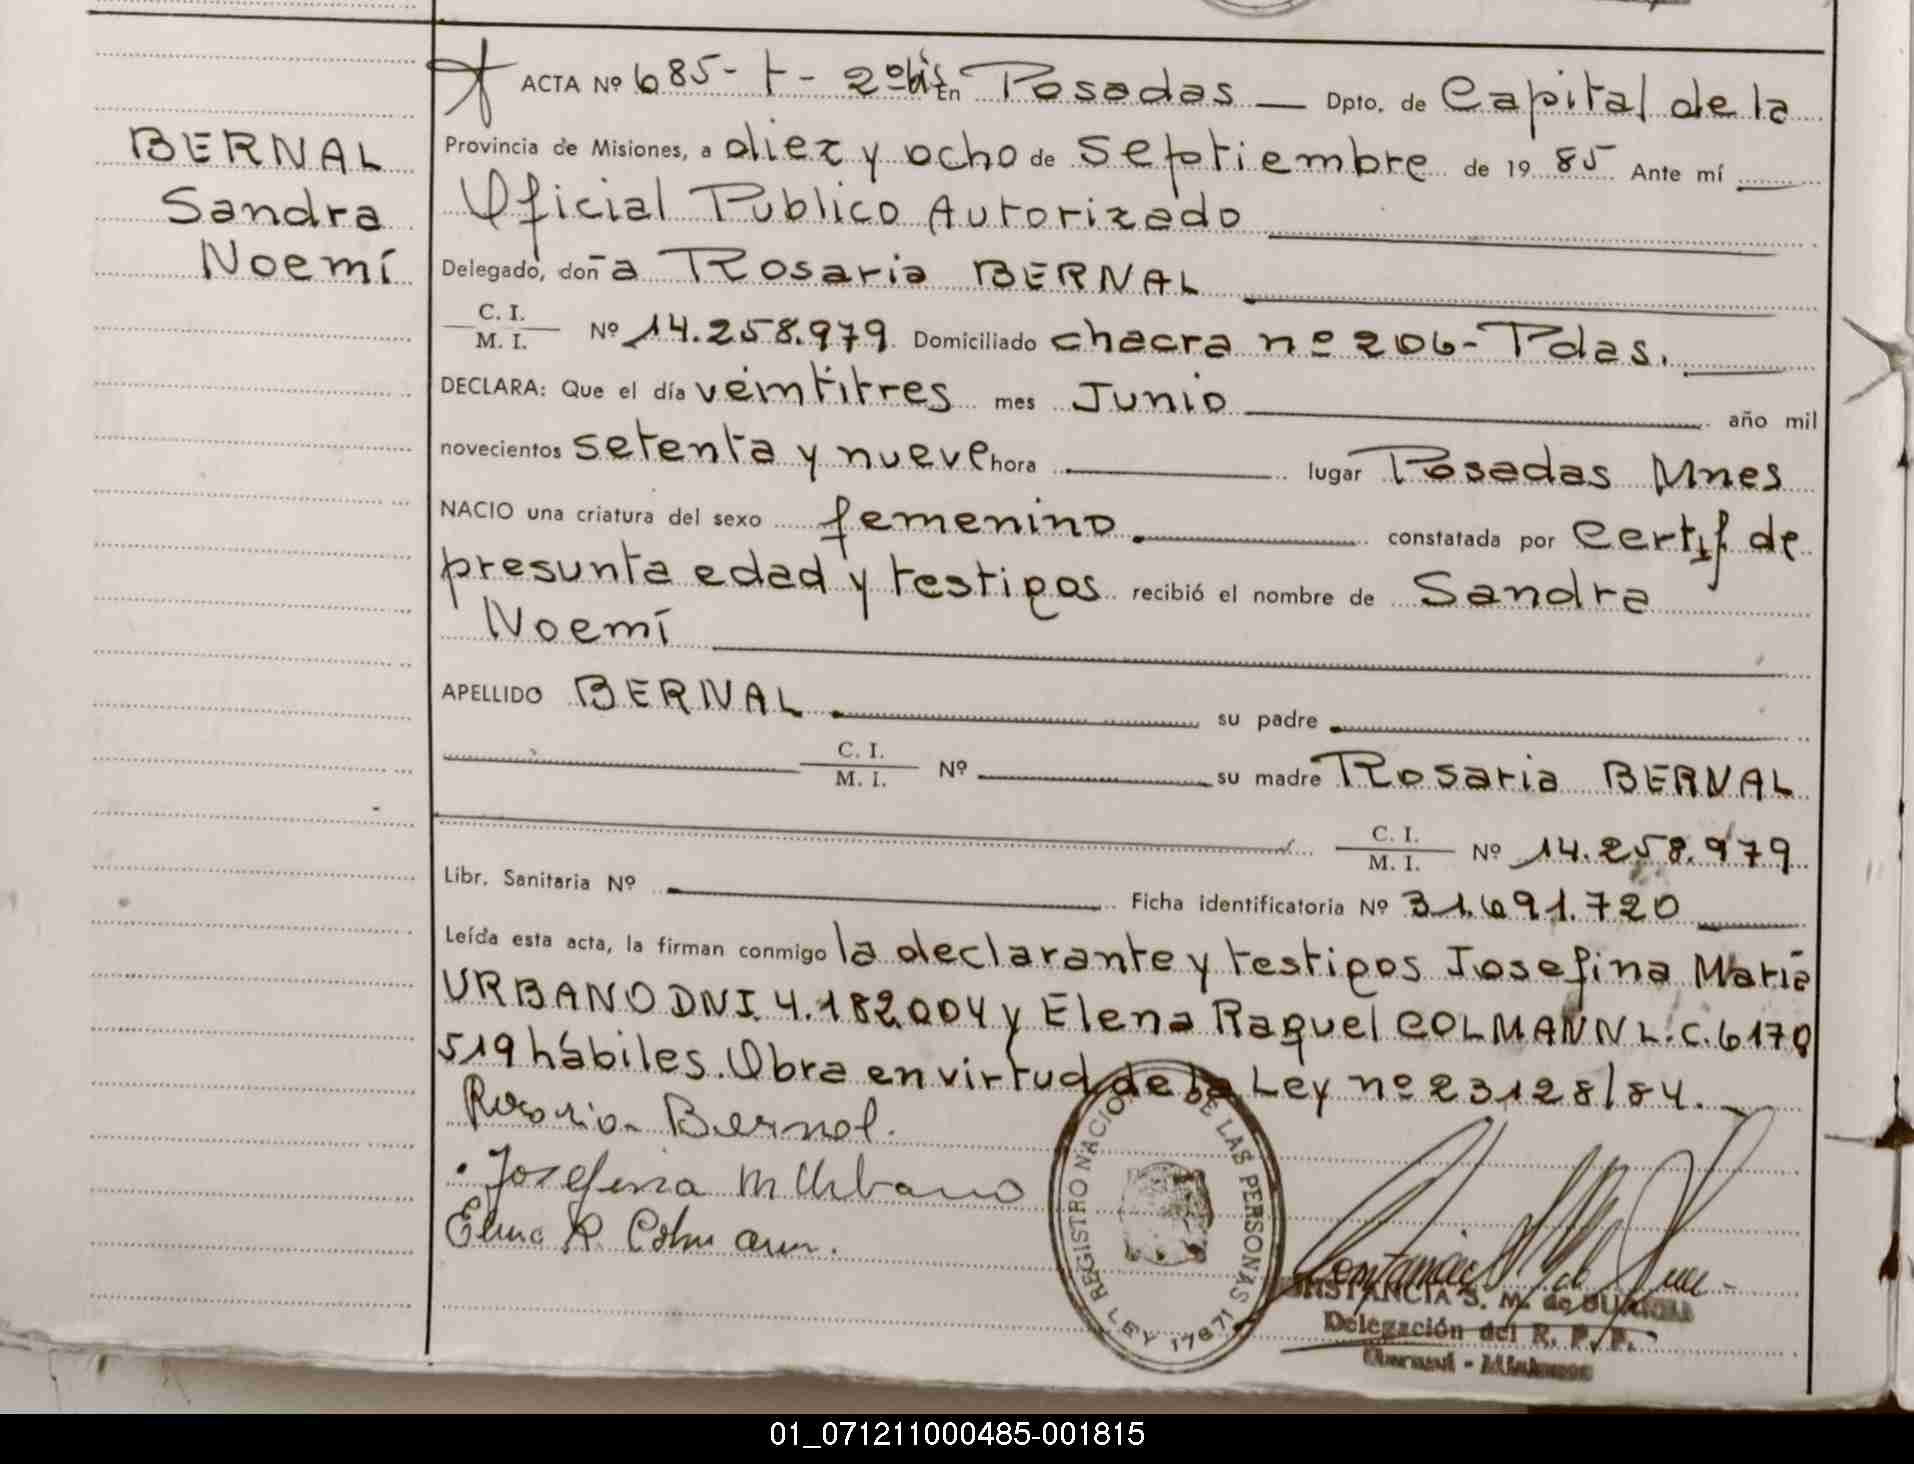 ACTA Nº 685- t - 2º bis En Posadas — Dpto. de Capital de la
BERNAL
Sandra
Noemí
Provincia de Misiones, a diez y ocho de septiembre de 1985 Ante mí
Oficial Publico Autorizado
Delegado, doña Rosaria BERNAL
C. I.
M. I. Nº 14.258.979 Domiciliado chacra nº 206- Pdas.
DECLARA: Que el día veintitres mes Junio año mil
novecientos setenta y nueve hora lugar Posadas Mnes
NACIO una criatura del sexo femenino constatada por Certif de
presunta edad y testigos recibió el nombre de Sandra
Noemí
APELLIDO BERNAL su padre
C. I.
M. I. Nº su madre Rosaria BERNAL
C. I.
M. I. Nº 14.258.979
Libr. Sanitaria Nº Ficha identificatoria Nº 31.691.720
Leída esta acta, la firman conmigo la declarante y testigos Josefina Maria
URBANO DNI 4.182004 y Elena Raquel COLMANN L.C. 6170
519 hábiles. Obra en virtud de la Ley nº 23128/84.
Rosaria Bernal.
Josefina M Urbano
Elena R. Colmann.
REGISTRO NACIONAL DE LAS PERSONAS
LEY 17671
CONSTANCIA S. M. de
Delegación del R. P. P.
Oberá - Misiones
01_071211000485-001815